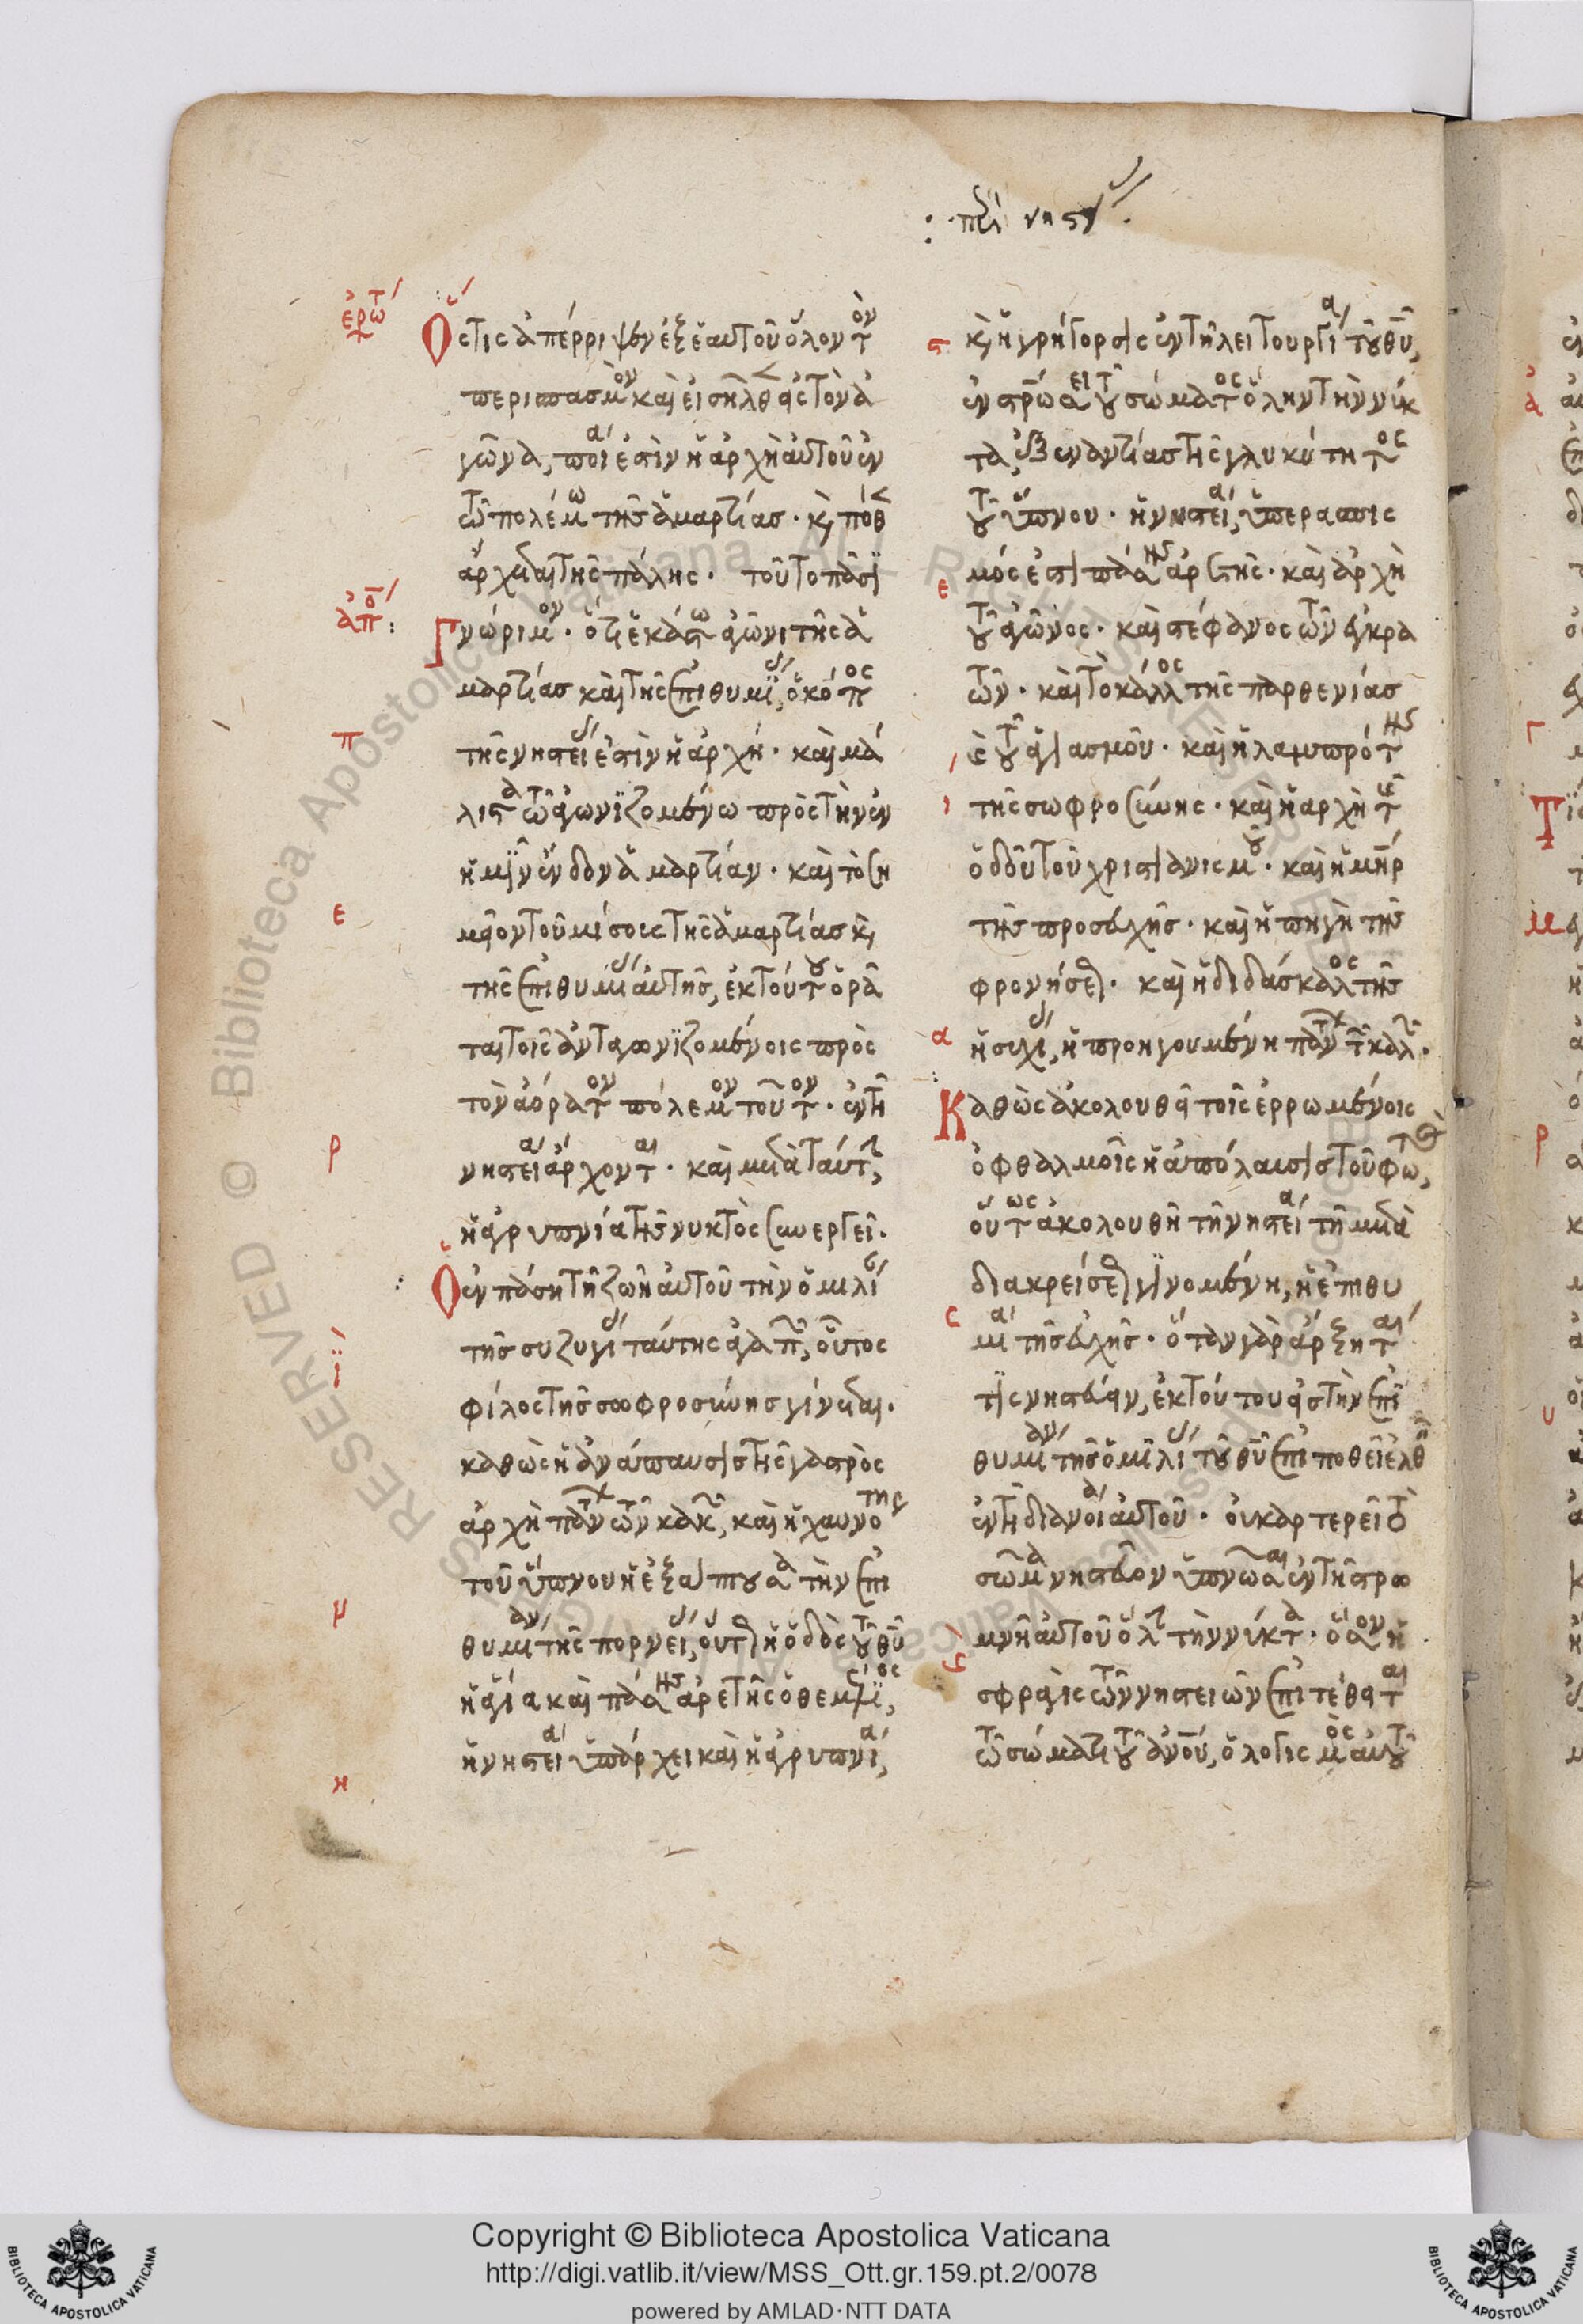 : περὶ νηστ .
ἐρωτ
Ὅστις ἀπέρριψεν ἐξ ἑαυτοῦ ὅλον τὸν
περισπασμὸν καὶ εἰσῆλθεν εἰς τὸν ἀ
γῶνα, ποία ἐστὶν ἡ ἀρχὴ αὐτοῦ ἐν
τῶ πολέμω τῆς ἁμαρτίας · κ, πόθεν
ἄρχεται τῆς πάλης · τοῦτο πᾶσι
ἀπο :
Γνώριμον · ὅτι ἑκάστω ἀγῶνι τῆς ἁ
μαρτίας καὶ τῆς ἐπιθυμίας, ὁ κόπος
π
τῆς νηστείας ἐστὶν ἡ ἀρχή · καὶ μά
λιστα τῶ ἀγωνιζομένω πρὸς τὴν ἐν
ἡμῖν ἔνδον ἁμαρτίαν · καὶ τὸ ση
ε
μεῖον τοῦ μίσους τῆς ἁμαρτίας κ,
τῆς ἐπιθυμίας αὐτῆς, ἐκ τούτου ὁρᾶ
ται τοῖς ἀνταγωνιζομένοις πρὸς
τὸν ἀόρατον πόλεμον τοῦτον · ἐν τῆ
ρ
νηστεία ἄρχονται · καὶ μετὰ ταύτην,
ἡ ἀγρυπνία τῆς νυκτὸς συνεργεῖ.
Ὁ ἐν πάση τῆ ζωῆ αὐτοῦ τὴν ὁμιλίαν
τῆς συζυγίας ταύτης ἀγαπῶν, οὗτος
ϊ
φίλος τῆς σωφροσύνης γίνεται.
καθὼς ἡ ἀνάπαυσις τῆς γαστρὸς
ἀρχὴ πάντων τῶν κακῶν, καὶ ἡ χαυνότης
τοῦ ὕπνου ἡ ἐξάπτουσα τὴν ἐπι
μ
θυμίαν τῆς πορνείας, οὕτως ἡ ὁδὸς τοῦ θυ
ἡ ἁγία καὶ πάσης ἀρετῆς ὁ θεμέλιος,
ἡ νηστεία ὑπάρχει καὶ ἡ ἀγρυπνία,
η
ς κ, ἡ γρήγορσις ἐν τῆ λειτουργία τοῦ θυ,
ἐν σταυρώσει τοῦ σώματος ὅλην τὴν νύκ
τα, ἐξ ἐναντίας τῆς γλυκύτητος
τοῦ ὕπνου · ἡ νηστεία, ὑπερασπισ
ε μός ἐστι πάσης ἀρετῆς · καὶ ἀρχὴ
τοῦ ἀγῶνος · καὶ στέφανος τῶν ἐγκρα
τῶν · καὶ τὸ κάλλος τῆς παρθενίας
, κ τοῦ ἁγιασμοῦ · καὶ ἡ λαμπρότης
ι τῆς σωφροσύνης · καὶ ἡ ἀρχὴ τῆς
ὁδοῦ τοῦ χριστιανισμοῦ · καὶ ἡ μηρ
τῆς προσευχῆς · καὶ ἡ πηγὴ τῆς
φρονήσεως · καὶ ἡ διδάσκαλος τῆς
α ἡσυχίας, ἡ προηγουμένη πάντων τῶν καλῶν.
Καθὼς ἀκολουθεῖ τοῖς ἐρρωμένοις
ὀφθαλμοῖς ἡ ἀπόλαυσις τοῦ φωτὸς,
οὕτως ἀκολουθεῖ τῆ νηστεία τῆ μετὰ
διακρίσεως γινομένη, ἡ ἐπιθυ
ς μία τῆς εὐχῆς · ὅταν γὰρ ἄρξηται
τὶς νηστεύειν, ἐκ τούτου εἰς τὴν ἐπι
θυμίαν τῆς ὁμιλίας τοῦ θυ ἐπιποθεῖ ἐλθεῖν
ἐν τῆ διανοία αὐτοῦ · οὐ καρτερεῖ τὸ
σῶμα νηστεῦον ὑπνῶσαι ἐν τῆ στρω
μνῆ αὐτοῦ ὅλην τὴν νύκτα · ὅσον ἡ
ς σφραγὶς τῶν νηστειῶν ἐπιτέθειται
τῶ σώματι τοῦ ἀνου, ὁ λογισμὸς αὐτοῦ
Copyright © Biblioteca Apostolica Vaticana
http://digi.vatlib.it/view/MSS_Ott.gr.159.pt.2/0078
powered by AMLAD·NTT DATA
BIBLIOTECA APOSTOLICA VATICANA
BIBLIOTECA APOSTOLICA VATICANA